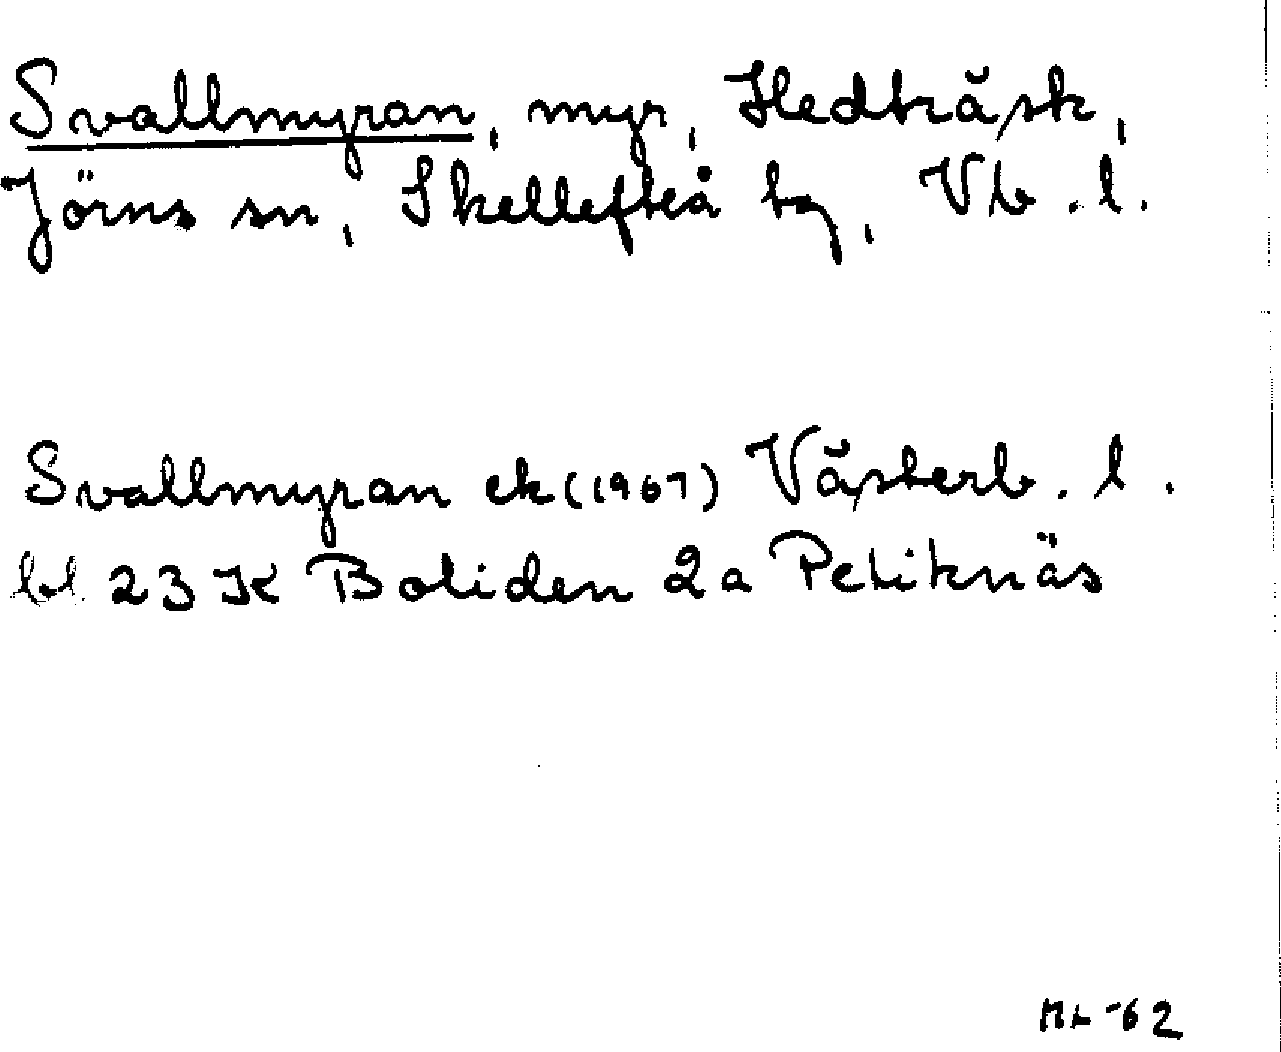 Svallmyran, myr, Hedträsk,
Jörns sn, Skellefteå tg, Vb. l.
Svallmyran ek (1967) Västerb. l.
bl. 23 K Boliden 2a Petiknäs
-62